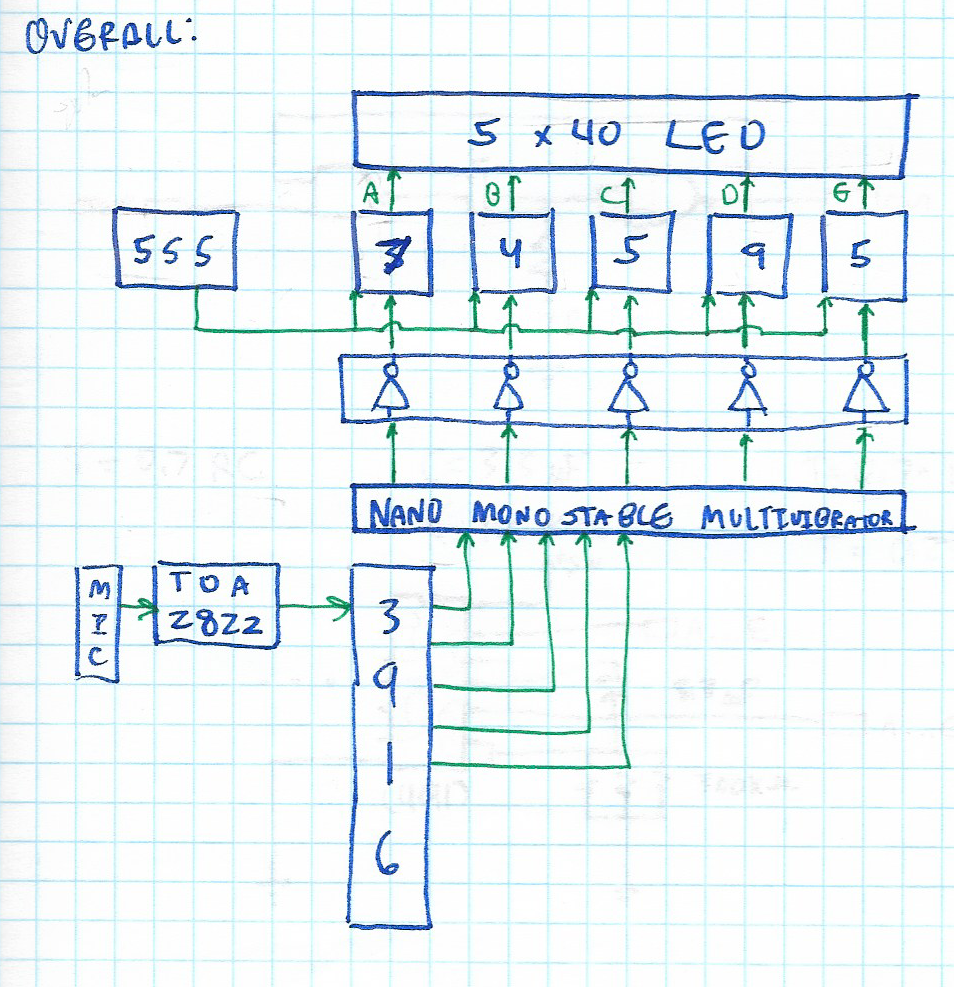 OVERALL:
5 x 40 LED
A B C D E
555
4 5 9 5
NANO MONOSTABLE MULTIVIBRATOR
MIC
TDA
2822
3
9
1
6